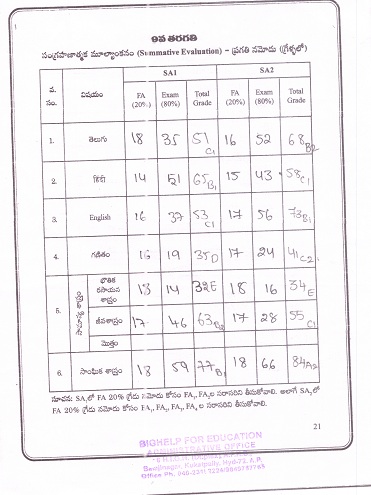 9వ తరగతి
సంగ్రహణాత్మక మూల్యాంకనం (Summative Evaluation) - ప్రగతి నమోదు (గ్రేళ్ళలో)
వ. సం. విషయం SA1 SA2
FA (20%) Exam (80%) Total Grade FA (20%) Exam (80%) Total Grade
1. తెలుగు 18 35 51 C1 16 52 68 B2
2. हिंदी 14 51 65 B1 15 43 58 C1
3. English 16 37 53 C1 17 56 73 B1
4. గణితం 16 19 35 D 17 24 41 C2
5. భౌతిక రసాయన శాస్త్రం 13 14 32 E 18 16 34 E
జీవశాస్త్రం 17 46 63 B2 17 28 55 C1
మొత్తం
6. సాంఘిక శాస్త్రం 18 59 77 B1 18 66 84 A2
సూచన: SA1లో FA 20% గ్రేడు నమోదు కోసం FA1, FA2ల సరాసరిని తీసుకోవాలి. అలాగే SA2లో
FA 20% గ్రేడు నమోదు కోసం FA1, FA2, FA3, FA4 ల సరాసరిని తీసుకోవాలి.
21
BIGHELP FOR EDUCATION